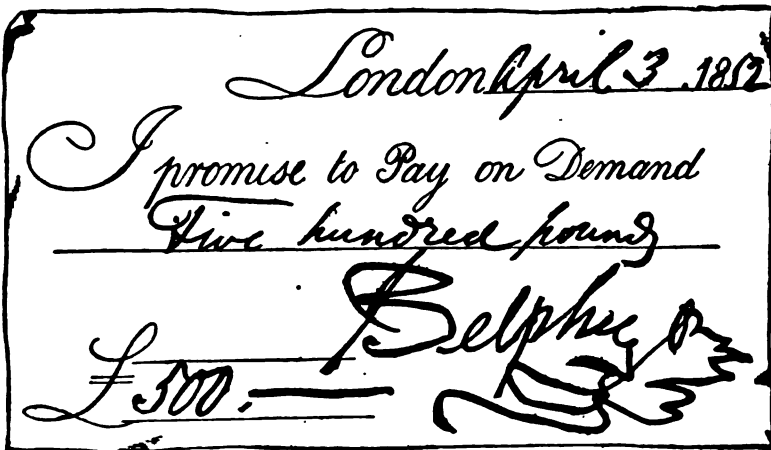 London April 3 1852
I promise to Pay on Demand
Five hundred pounds
Belpheg
£500.